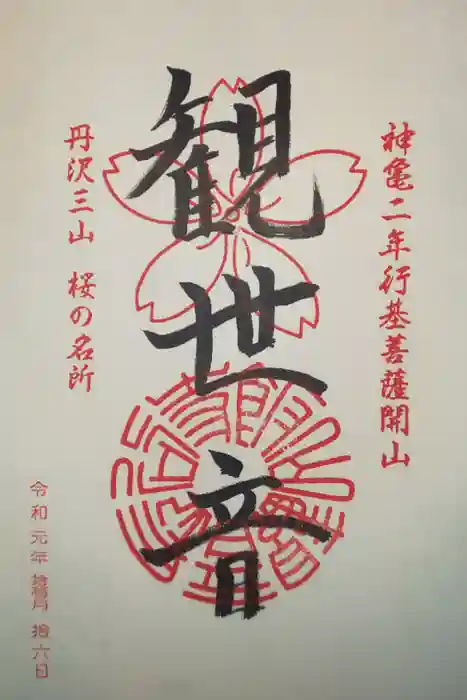 神亀二年行基菩薩開山
観世音
丹沢三山 桜の名所
令和元年 拾壱月 拾六日